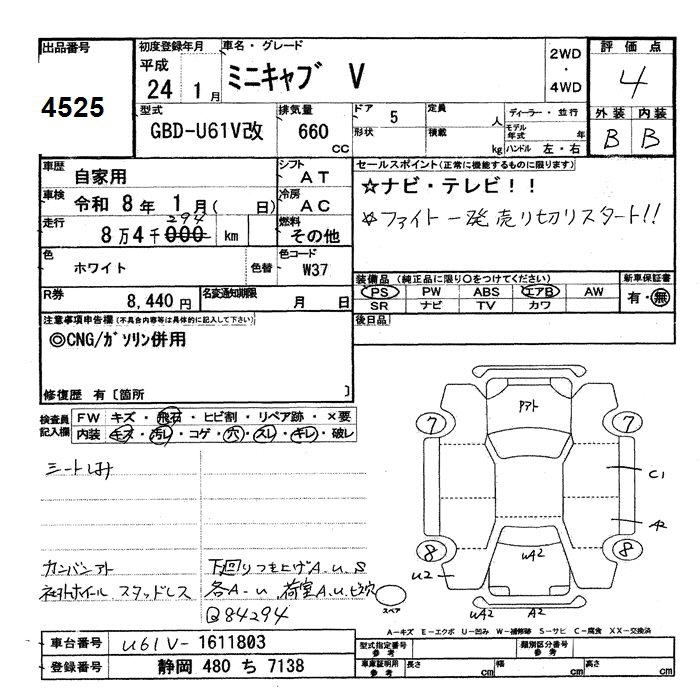 出品番号
4525
初度登録年月
平成
24 1月
車名・グレード
ミニキャブ V
2WD
・
4WD
評価点
4
型式
GBD-U61V改
排気量
660
CC
ドア 5
形状
定員
人
積載
kg
ディーラー・並行
モデル年式 年
ハンドル 左・右
外装 内装
B B
車歴
自家用
シフト
AT
車検
令和 8年 1月( 日)
冷房
AC
走行
294
8万4千000 km
燃料
その他
色
ホワイト
色替
色コード
W37
R券
8,440円
名変通知期限
月 日
セールスポイント(正常に機能するものに限ります)
☆ナビ・テレビ!!
☆ファイト一発売り切りスタート!!
装備品(純正品に限り○をつけてください)
PS PW ABS エアB AW
SR ナビ TV カワ
新車保証書
有・無
後日品
注意事項申告欄(不具合内容等は具体的に記入して下さい)
◎CNG/ガソリン併用
修復歴 有〔箇所 〕
検査員記入欄
FW キズ・飛石・ヒビ割・リペア跡・×要
内装 キズ・汚レ・コゲ・穴・スレ・キレ・破レ
シートしみ
カンバンアト
社外ホイール スタッドレス
下回りつき上げA.U.S
各A-U 荷室A.U.ビス穴
Q84294
アト
7 7
C1
A2
8 8
U2
WA2
WA2 A2
スペア
A-キズ E-エクボ U-凹み W-補修跡 S-サビ C-腐食 XX-交換済
車台番号 U61V-1611803
登録番号 静岡 480 ち 7138
型式指定番号
参考
類別区分番号
参考
車庫証明用
参考
長さ cm 幅 cm 高さ cm